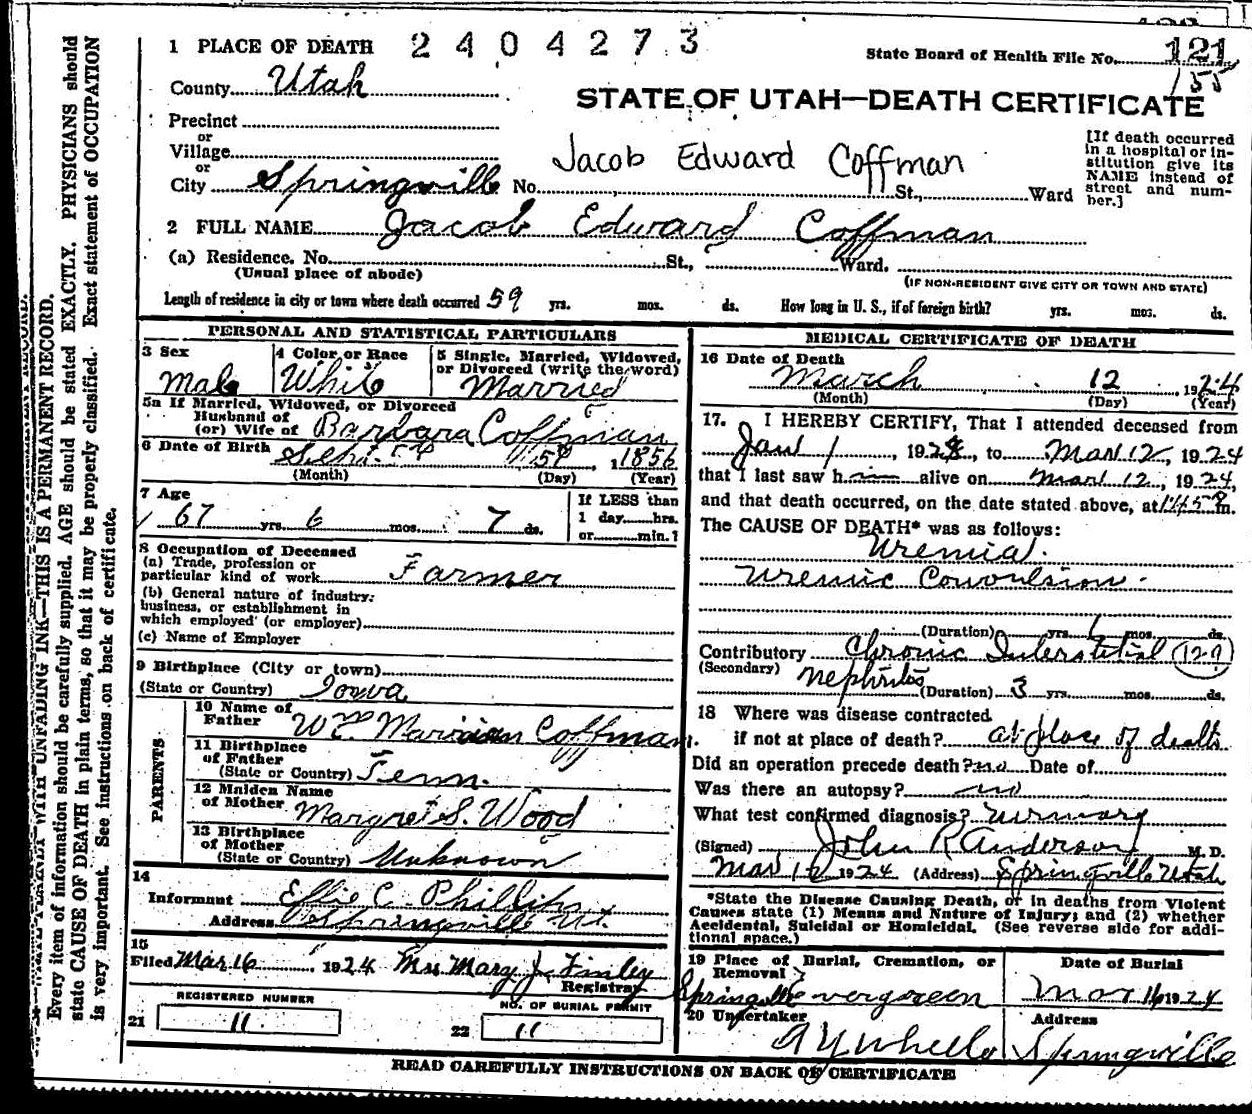 1 PLACE OF DEATH 2404273 State Board of Health File No. 121
155
County Utah
STATE OF UTAH—DEATH CERTIFICATE
Precinct
or
Village
or
City Springville No. St., Ward
Jacob Edward Coffman
[If death occurred
in a hospital or in-
stitution give its
NAME instead of
street and num-
ber.]
2 FULL NAME Jacob Edward Coffman
(a) Residence. No. St., Ward.
(Usual place of abode) (IF NON-RESIDENT GIVE CITY OR TOWN AND STATE)
Length of residence in city or town where death occurred 59 yrs. mos. ds. How long in U. S., if of foreign birth? yrs. mos. ds.
PERSONAL AND STATISTICAL PARTICULARS
3 Sex 4 Color or Race 5 Single, Married, Widowed,
or Divorced (write the word)
Male White Married
5a If Married, Widowed, or Divorced
Husband of
(or) Wife of Barbara Coffman
6 Date of Birth Sept. 5th 1856
(Month) (Day) (Year)
7 Age If LESS than
67 yrs. 6 mos. 7 ds. 1 day hrs.
or min.?
8 Occupation of Deceased
(a) Trade, profession or
particular kind of work Farmer
(b) General nature of industry:
business, or establishment in
which employed (or employer)
(c) Name of Employer
9 Birthplace (City or town)
(State or Country) Iowa
PARENTS
10 Name of
Father Wm Marian Coffman.
11 Birthplace
of Father
(State or Country) Tenn.
12 Maiden Name
of Mother Margret S. Wood
13 Birthplace
of Mother
(State or Country) Unknown
14
Informant Effie C. Phillips
Address Springville Ut.
15
Filed Mar 16 1924 Mrs Mary J. Finley
Registrar
REGISTERED NUMBER NO. OF BURIAL PERMIT
21 11 22 11
MEDICAL CERTIFICATE OF DEATH
16 Date of Death
March 12 1924
(Month) (Day) (Year)
17. I HEREBY CERTIFY, That I attended deceased from
Jan 1, 1924, to Mar 12, 1924
that I last saw him alive on Mar 12, 1924,
and that death occurred, on the date stated above, at m.
The CAUSE OF DEATH* was as follows:
Uremia.
Uremic Convulsion.
(Duration) yrs. mos. ds.
Contributory Chronic Interstitial 129
(Secondary) Nephritis (Duration) 3 yrs. mos. ds.
18 Where was disease contracted
if not at place of death? at place of death
Did an operation precede death? no Date of
Was there an autopsy? no
What test confirmed diagnosis? urinary
(Signed) John R Anderson M. D.
Mar 1924 (Address) Springville Utah
*State the Disease Causing Death, or in deaths from Violent
Causes state (1) Means and Nature of Injury; and (2) whether
Accidental, Suicidal or Homicidal. (See reverse side for addi-
tional space.)
19 Place of Burial, Cremation, or
Removal Date of Burial
Springville Evergreen Mar 16 1924
20 Undertaker Address
A Y Wheeler Springville
READ CAREFULLY INSTRUCTIONS ON BACK OF CERTIFICATE
WITH UNFADING INK—THIS IS A PERMANENT RECORD.
Every item of information should be carefully supplied. AGE should be stated EXACTLY. PHYSICIANS should
state CAUSE OF DEATH in plain terms, so that it may be properly classified. Exact statement of OCCUPATION
is very important. See instructions on back of certificate.